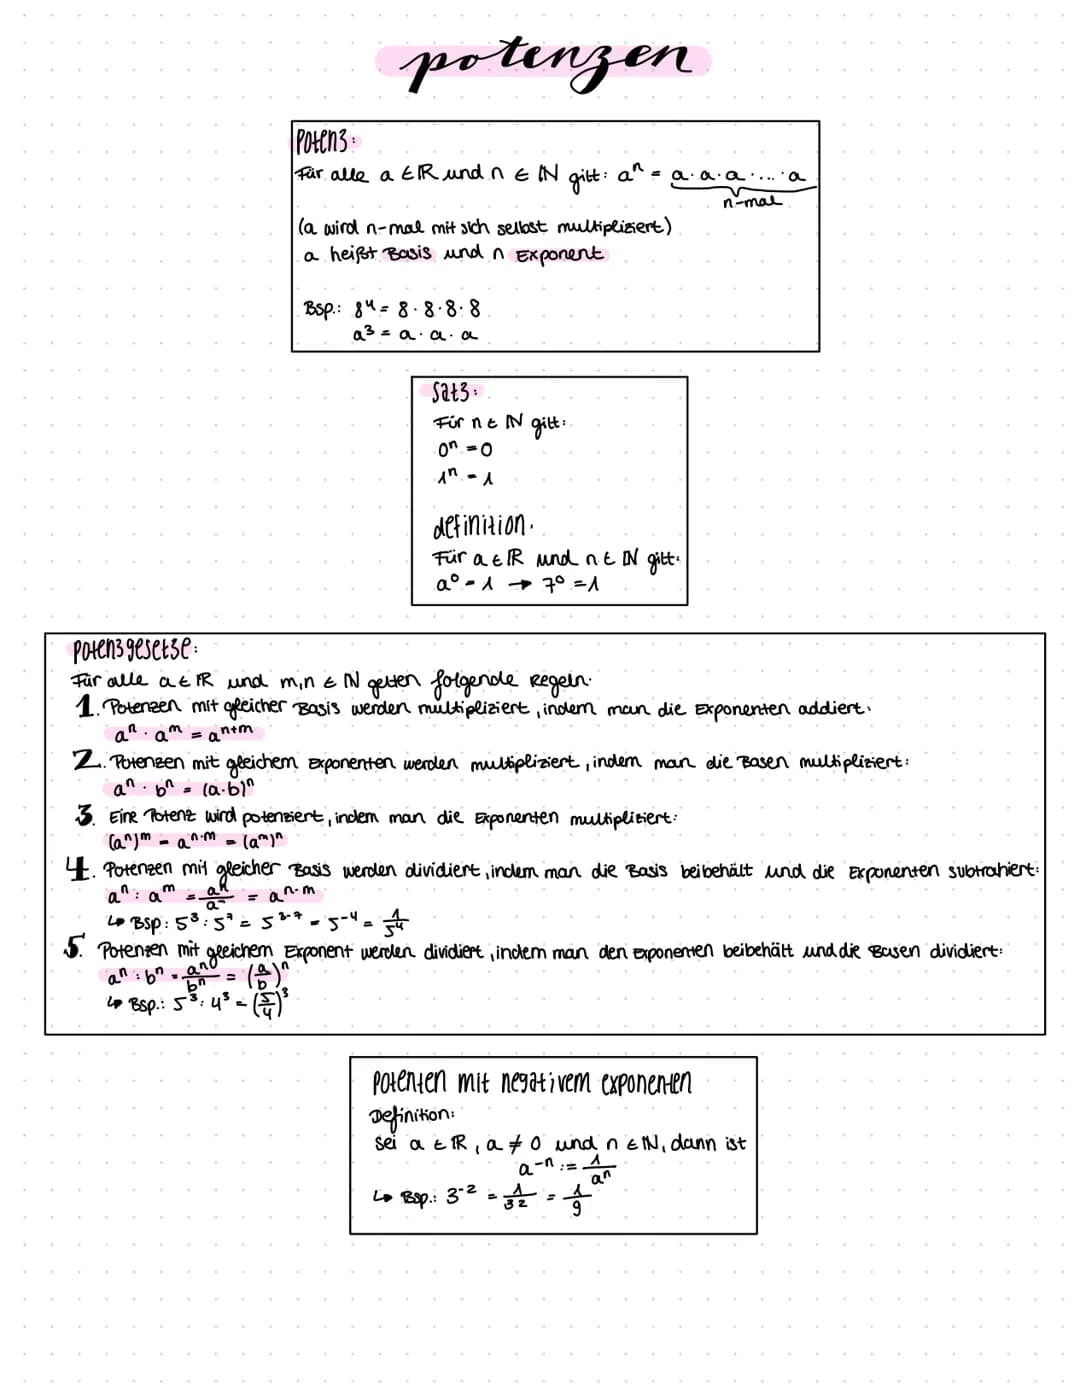 potenzen
Potenz:
Für alle a ∈ ℝ und n ∈ ℕ gilt: aⁿ = a · a · a · ... · a
n-mal
(a wird n-mal mit sich selbst multipliziert)
a heißt Basis und n Exponent
Bsp.: 8⁴ = 8 · 8 · 8 · 8
a³ = a · a · a
Satz:
Für n ∈ ℕ gilt:
0ⁿ = 0
1ⁿ = 1
definition:
Für a ∈ ℝ und n ∈ ℕ gilt:
a⁰ = 1 → 7⁰ = 1
potenzgesetze:
Für alle a ∈ ℝ und m,n ∈ ℕ gelten folgende Regeln:
1. Potenzen mit gleicher Basis werden multipliziert, indem man die Exponenten addiert:
aⁿ · aᵐ = aⁿ⁺ᵐ
2. Potenzen mit gleichem Exponenten werden multipliziert, indem man die Basen multipliziert:
aⁿ · bⁿ = (a·b)ⁿ
3. Eine Potenz wird potenziert, indem man die Exponenten multipliziert:
(aⁿ)ᵐ = aⁿ·ᵐ = (aᵐ)ⁿ
4. Potenzen mit gleicher Basis werden dividiert, indem man die Basis beibehält und die Exponenten subtrahiert:
aⁿ : aᵐ = aⁿ/aᵐ = aⁿ⁻ᵐ
↳ Bsp: 5³ : 5⁷ = 5³⁻⁷ = 5⁻⁴ = 1/5⁴
5. Potenzen mit gleichem Exponent werden dividiert, indem man den Exponenten beibehält und die Basen dividiert:
aⁿ : bⁿ = aⁿ/bⁿ = (a/b)ⁿ
↳ Bsp.: 5³ : 4³ = (5/4)³
potenten mit negativem exponenten
Definition:
sei a ∈ ℝ, a ≠ 0 und n ∈ ℕ, dann ist
a⁻ⁿ := 1/aⁿ
↳ Bsp.: 3⁻² = 1/3² = 1/9